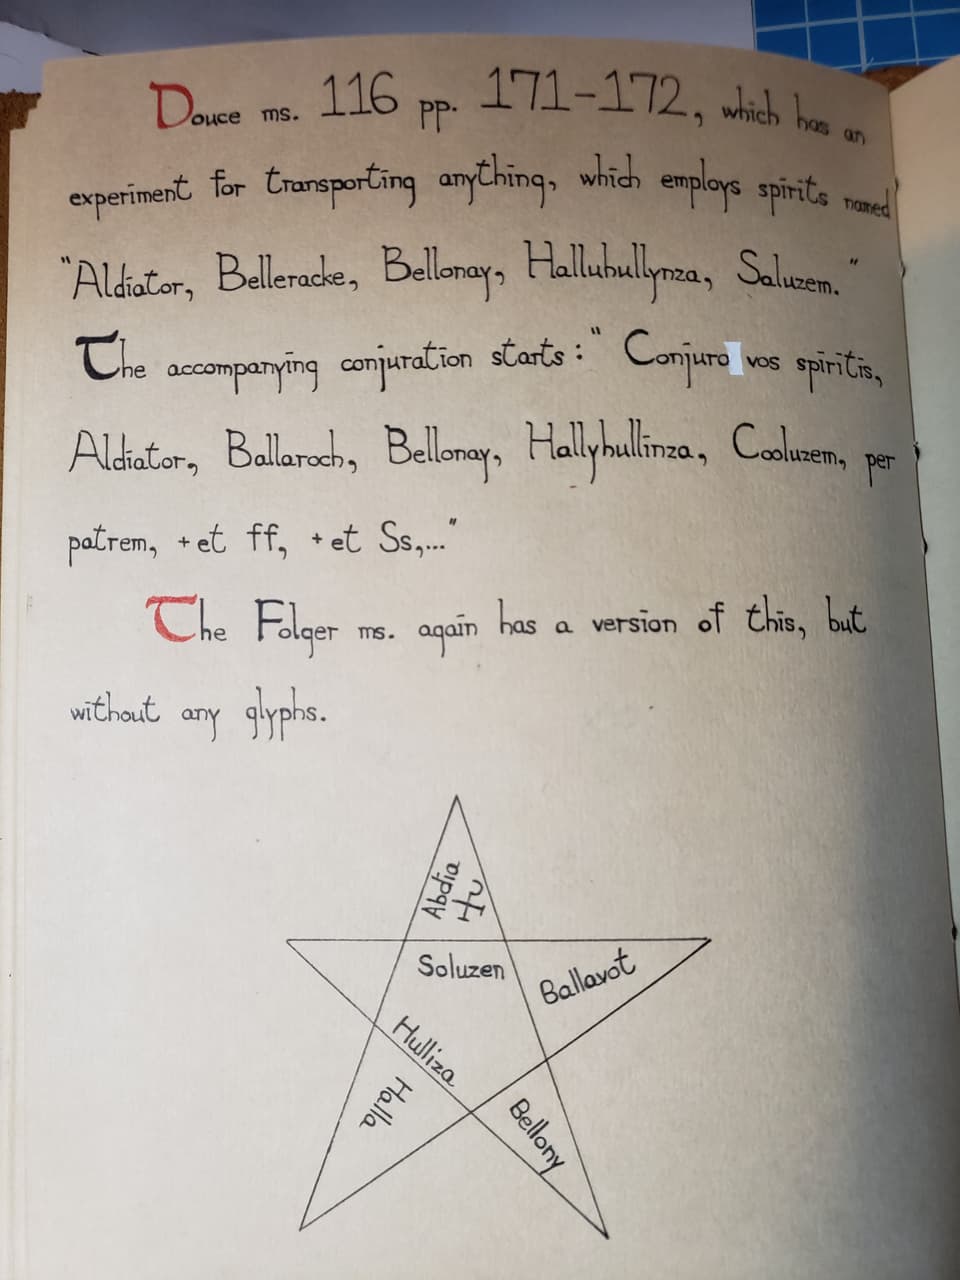 Douce ms. 116 pp. 171-172, which has an
experiment for transporting anything, which employs spirits named
"Aldiator, Belleracke, Bellonay, Halluhullynza, Saluzem."
The accompanying conjuration starts: "Conjuro vos spiritis,
Aldiator, Ballaroch, Bellonay, Hallyhullinza, Cooluzem, per
patrem, + et ff, + et Ss,..."
The Folger ms. again has a version of this, but
without any glyphs.
Abdia
Hu
Soluzen
Ballavot
Hulliza
Halla
Bellony